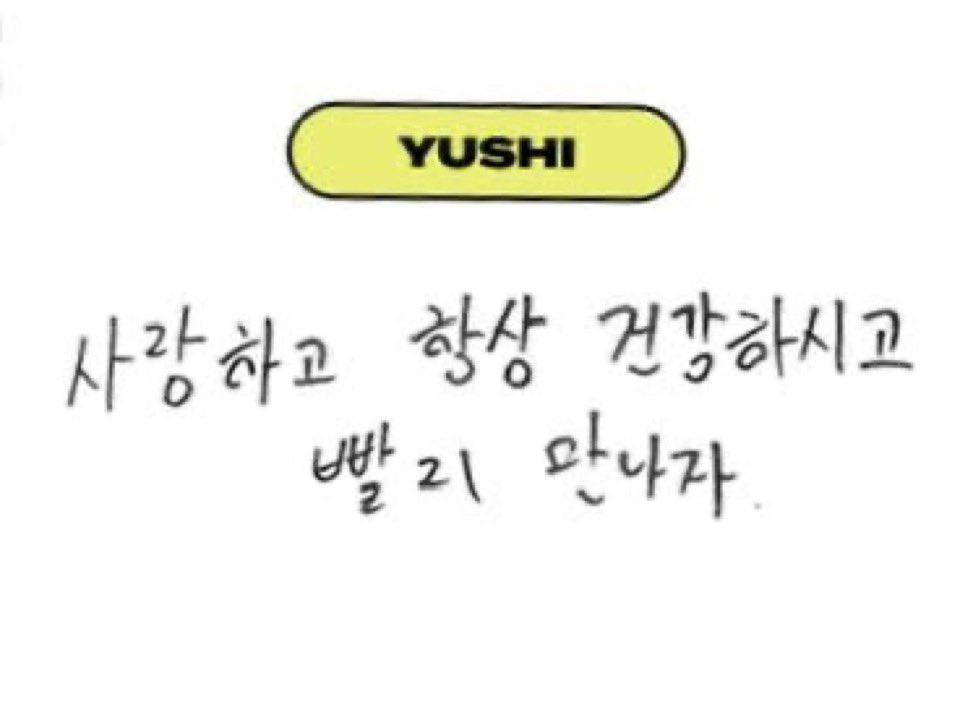 YUSHI
사랑하고 항상 건강하시고
빨리 만나자.